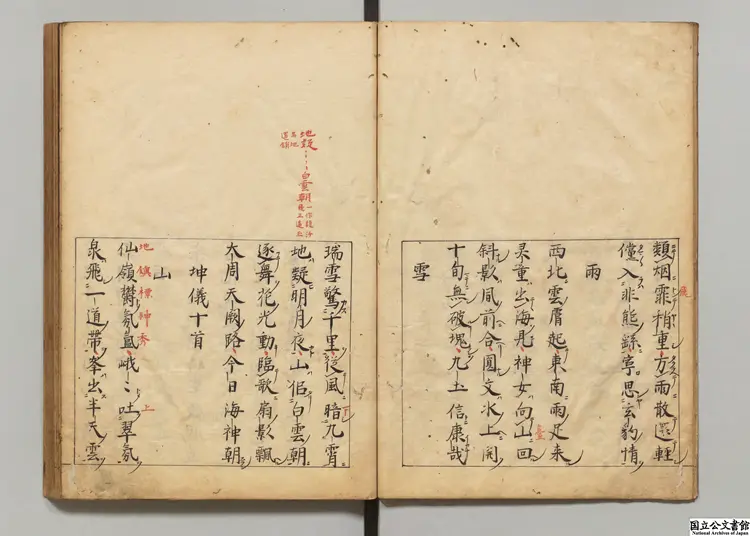 類烟霏稍重方雨散還軽
儻入非熊繇寧思玄豹情
雨
西北雲膚起東南雨足来
灵童出海見神女向山回
臺
斜影風前合圓文水上開
十旬無破塊九土信康哉
雪
地疑
白雲朝
瑞雪驚千里従風暗九霄
地疑明月夜山佀白雲朝
逐舞花光動臨歌扇影飄
大周天闕路今日海神朝
坤儀十首
山
地鎮標神秀
上
仙嶺鬱氛氳峨〻吐翠氛
泉飛一道帯峯出半天雲
国立公文書館
National Archives of Japan